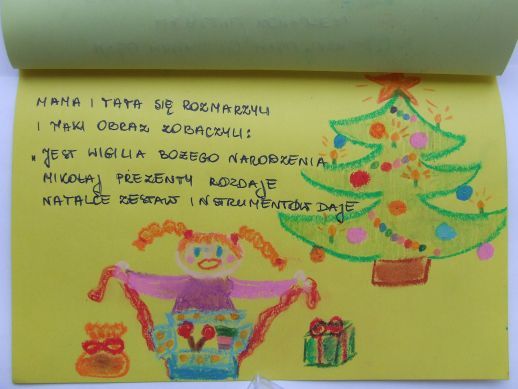 MAMA I TATA SIĘ ROZMARZYLI
I TAKI OBRAZ ZOBACZYLI:
„JEST WIGILIA BOŻEGO NARODZENIA
MIKOŁAJ PREZENTY ROZDAJE
NATALCE ZESTAW INSTRUMENTÓW DAJE